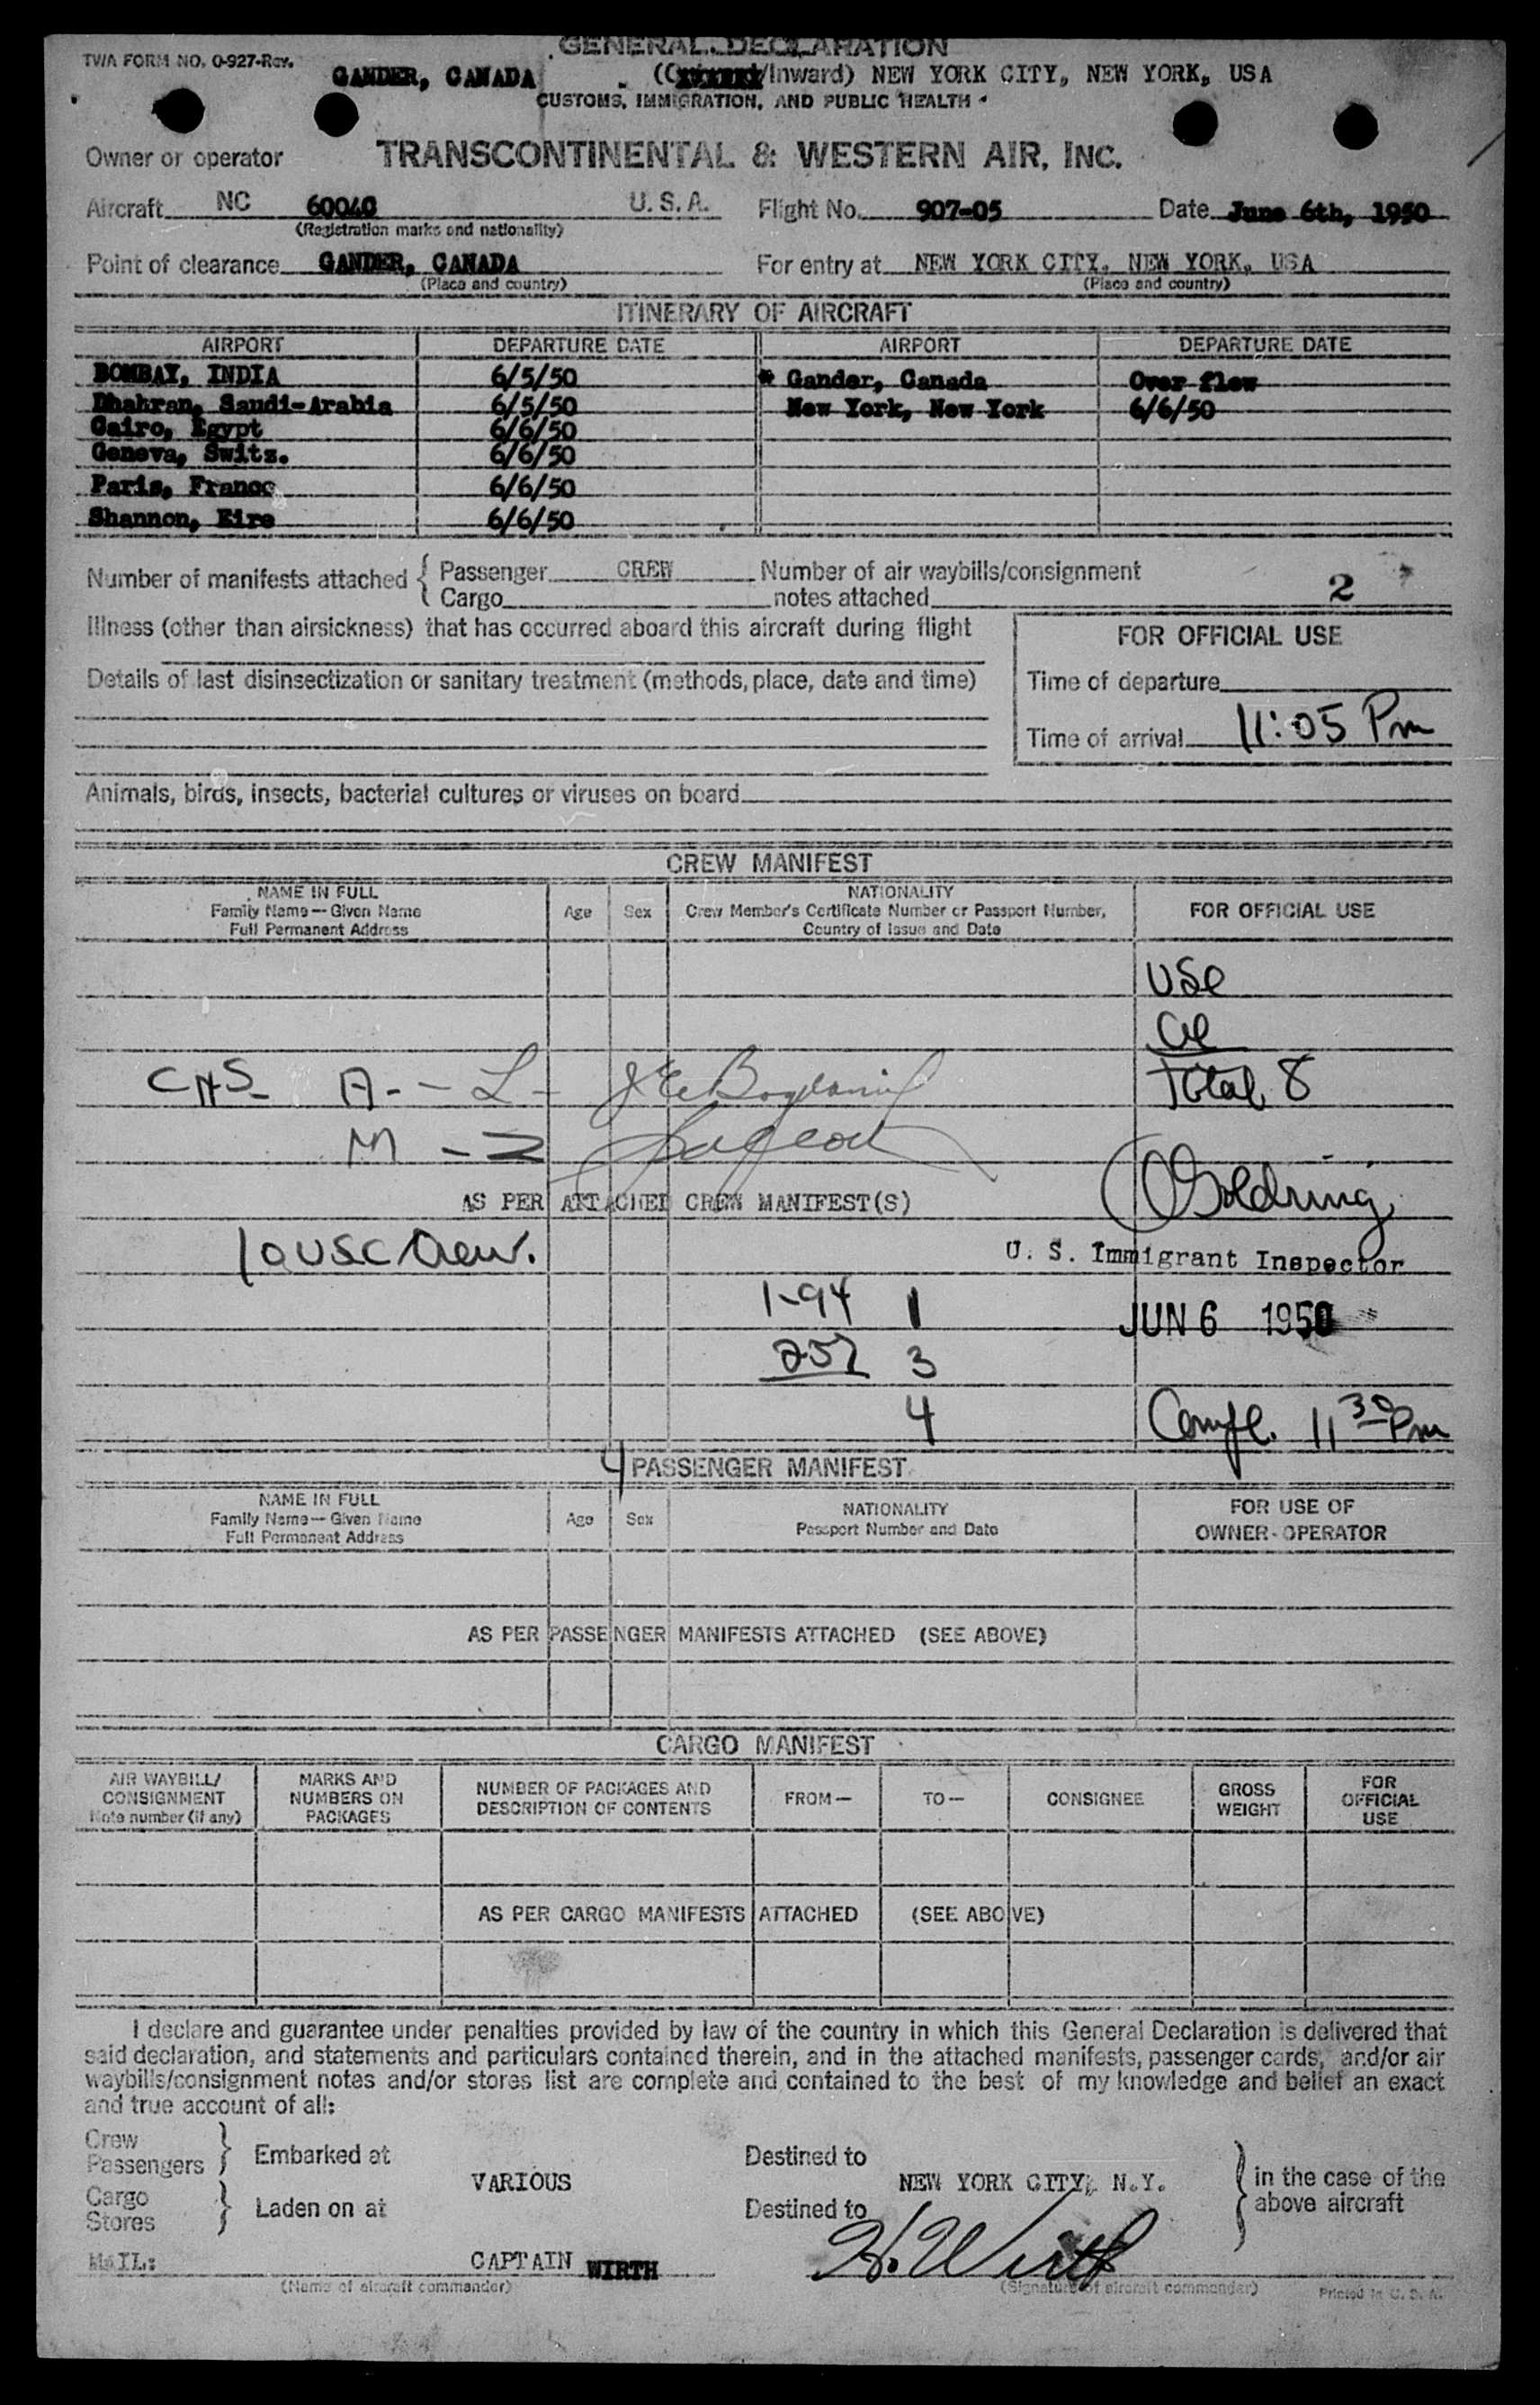 GENERAL DECLARATION
TWA FORM NO. O-927-Rev.
GANDER, CANADA (/Inward) NEW YORK CITY, NEW YORK, USA
CUSTOMS, IMMIGRATION, AND PUBLIC HEALTH
Owner or operator TRANSCONTINENTAL & WESTERN AIR, INC.
Aircraft NC 60040 U.S.A. Flight No. 907-05 Date June 6th, 1950
(Registration marks and nationality)
Point of clearance GANDER, CANADA For entry at NEW YORK CITY, NEW YORK, USA
(Place and country) (Place and country)
ITINERARY OF AIRCRAFT
AIRPORT DEPARTURE DATE AIRPORT DEPARTURE DATE
BOMBAY, INDIA 6/5/50 * Gander, Canada Over flew
Dhahran, Saudi-Arabia 6/5/50 New York, New York 6/6/50
Cairo, Egypt 6/6/50
Geneva, Switz. 6/6/50
Paris, France 6/6/50
Shannon, Eire 6/6/50
Number of manifests attached { Passenger CREW Number of air waybills/consignment
Cargo notes attached 2
Illness (other than airsickness) that has occurred aboard this aircraft during flight
FOR OFFICIAL USE
Details of last disinsectization or sanitary treatment (methods, place, date and time)
Time of departure
Time of arrival 11:05 Pm
Animals, birds, insects, bacterial cultures or viruses on board
CREW MANIFEST
NAME IN FULL
Family Name — Given Name
Full Permanent Address
Age Sex
NATIONALITY
Crew Member's Certificate Number or Passport Number,
Country of Issue and Date
FOR OFFICIAL USE
Total 8
A - - L -
M - Z
AS PER ATTACHED CREW MANIFEST(S)
Goldring
10 USC Crew.
U. S. Immigrant Inspector
1-94 1
JUN 6 1950
257 3
4 Compl. 11 30 Pm
4 PASSENGER MANIFEST
NAME IN FULL
Family Name — Given Name
Full Permanent Address
Age Sex
NATIONALITY
Passport Number and Date
FOR USE OF
OWNER-OPERATOR
AS PER PASSENGER MANIFESTS ATTACHED (SEE ABOVE)
CARGO MANIFEST
AIR WAYBILL/
CONSIGNMENT
Note number (if any)
MARKS AND
NUMBERS ON
PACKAGES
NUMBER OF PACKAGES AND
DESCRIPTION OF CONTENTS
FROM —
TO —
CONSIGNEE
GROSS
WEIGHT
FOR
OFFICIAL
USE
AS PER CARGO MANIFESTS ATTACHED (SEE ABOVE)
I declare and guarantee under penalties provided by law of the country in which this General Declaration is delivered that
said declaration, and statements and particulars contained therein, and in the attached manifests, passenger cards, and/or air
waybills/consignment notes and/or stores list are complete and contained to the best of my knowledge and belief an exact
and true account of all:
Crew
Passengers } Embarked at Destined to
VARIOUS NEW YORK CITY, N.Y. } in the case of the
above aircraft
Cargo
Stores } Laden on at Destined to
MAIL: CAPTAIN WIRTH H. Wirth
(Name of aircraft commander) (Signature of aircraft commander) Printed in U. S. A.